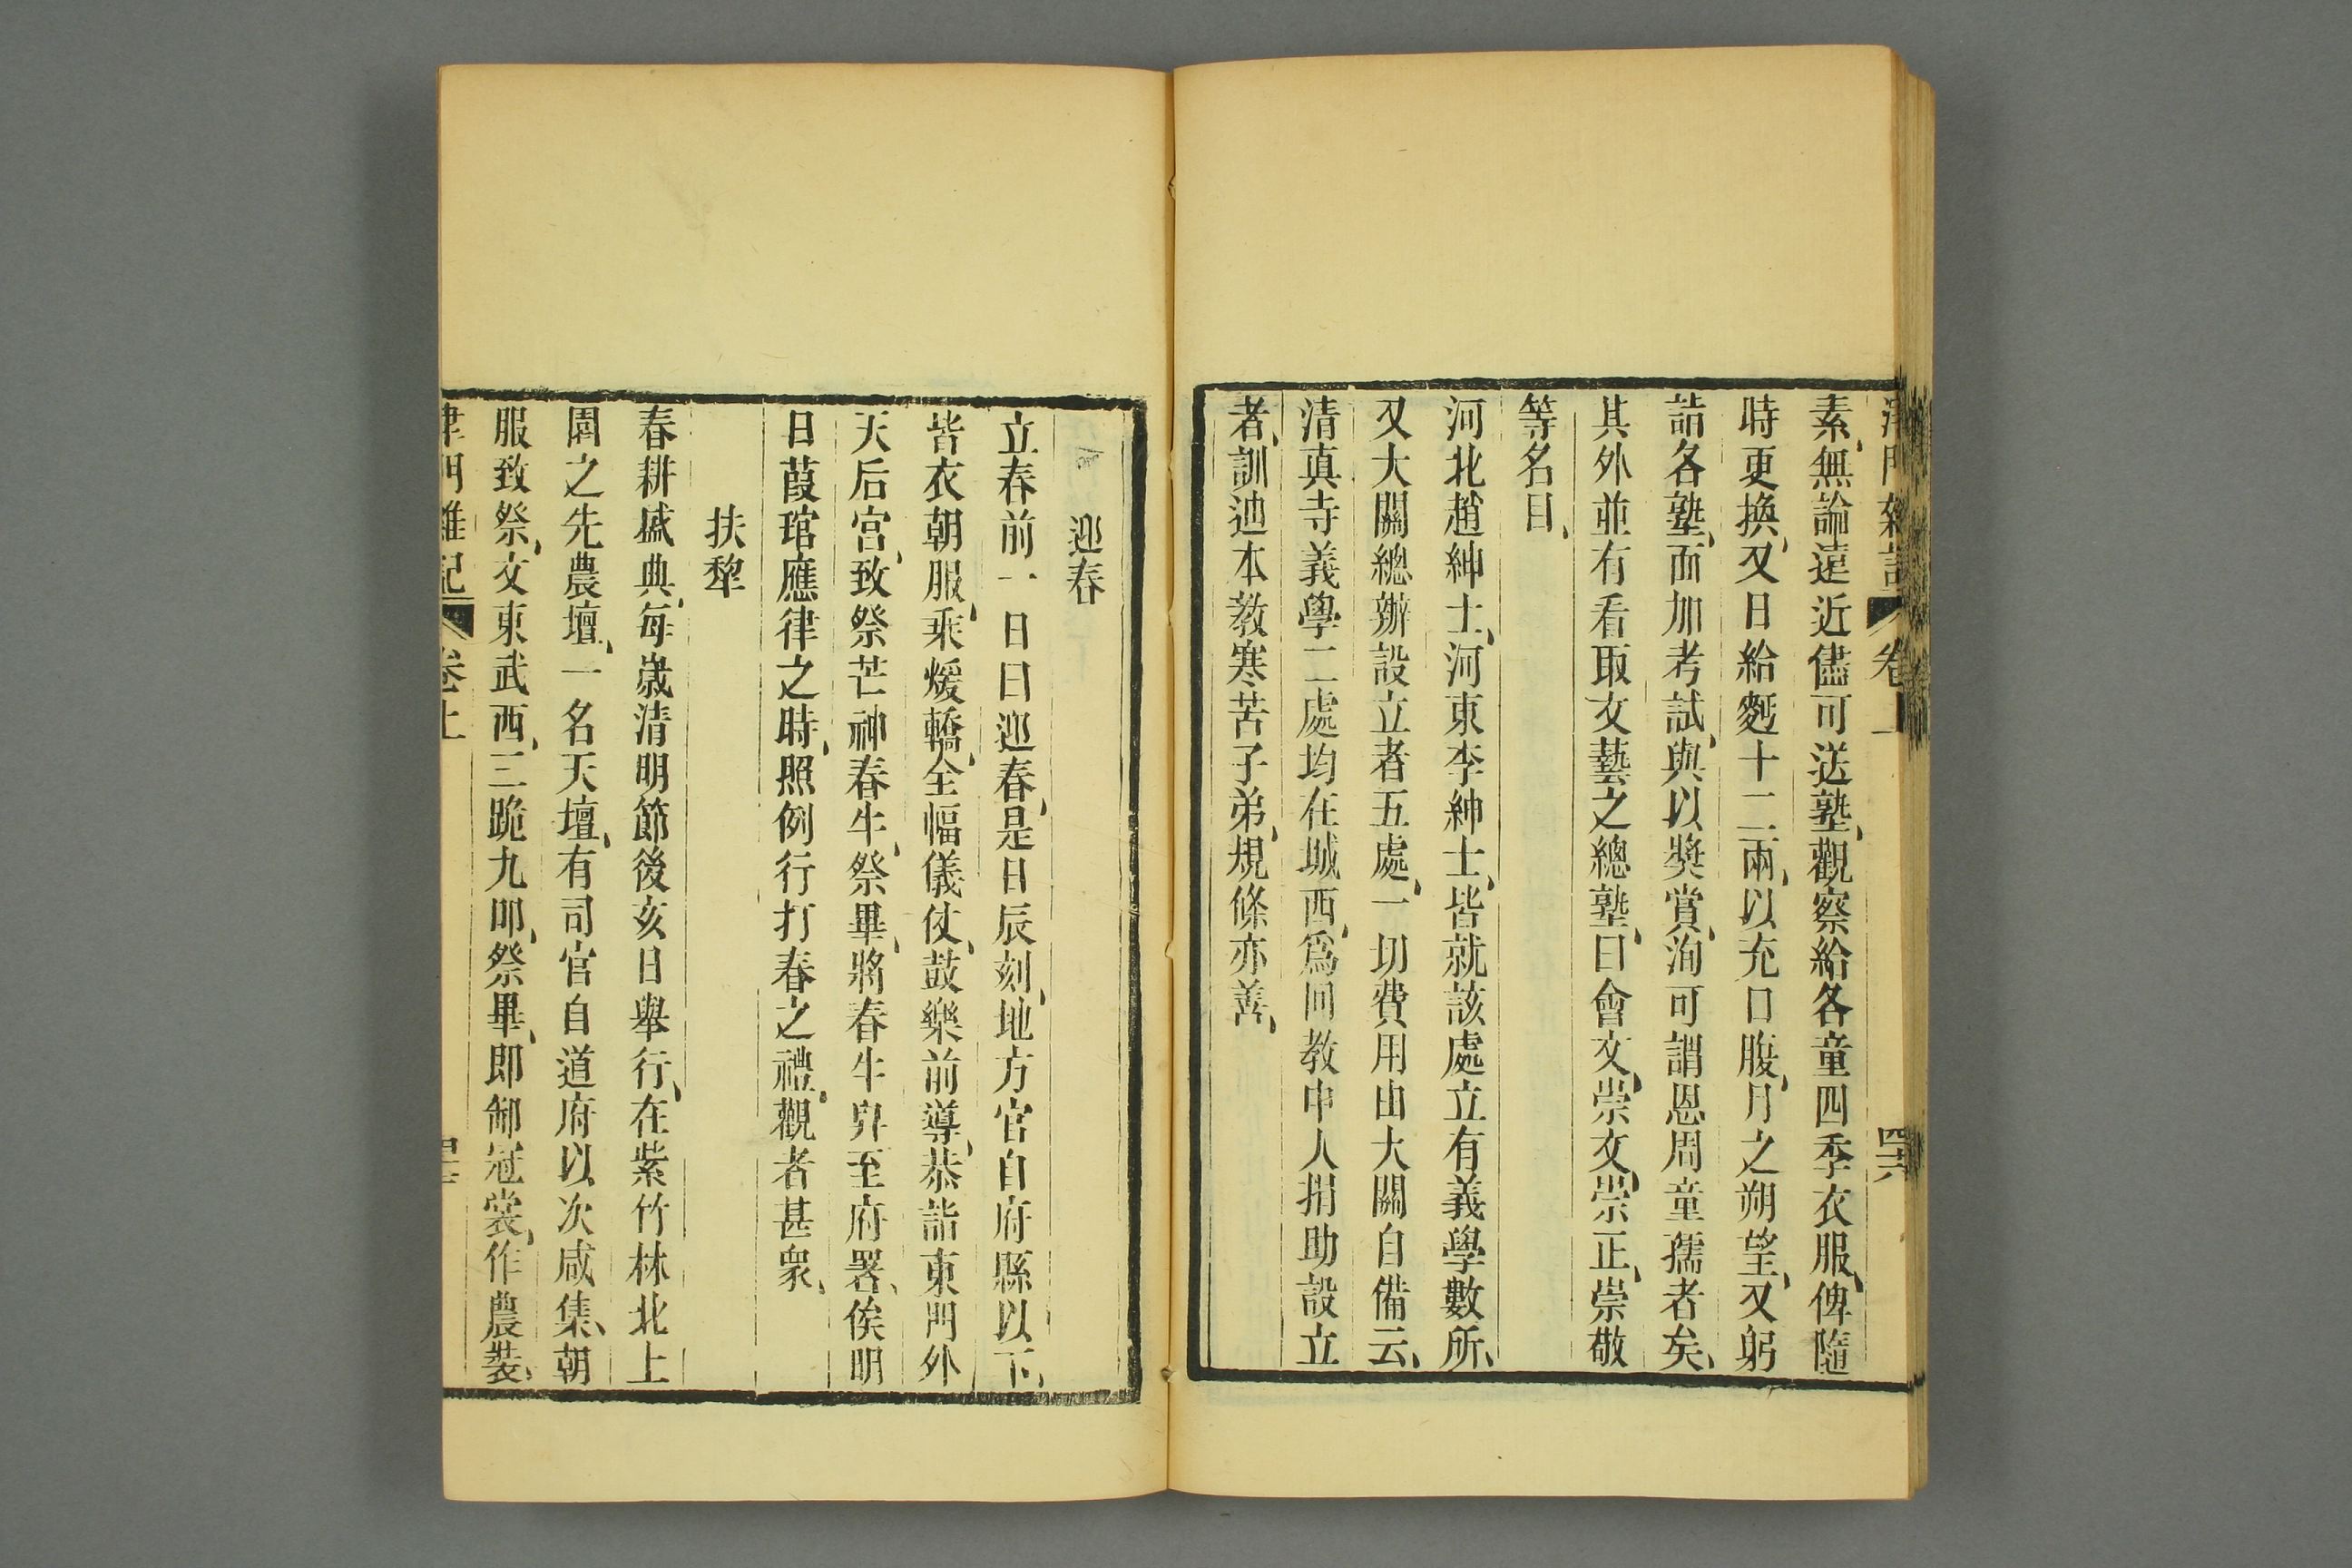 津門雜記 卷上 四六
素、無論遠近儘可送塾、觀察給各童四季衣服、俾隨
時更換、又日給麪十二兩、以充口腹、月之朔望、又躬
詣各塾、面加考試、與以獎賞、洵可謂恩周童孺者矣、
其外並有看取文藝之總塾、曰會文、崇文、崇正、崇敬
等名目、
河北趙紳士、河東李紳士、皆就該處立有義學數所、
又大關總辦設立者五處、一切費用由大關自備云、
清真寺義學二處均在城西、爲回教中人捐助設立
者、訓迪本教寒苦子弟、規條亦善、
迎春
立春前一日曰迎春、是日辰刻、地方官自府縣以下、
皆衣朝服、乘煖轎、全幅儀仗、鼓樂前導、恭詣東門外
天后宮、致祭芒神春牛、祭畢、將春牛舁至府署、俟明
日葭琯應律之時、照例行打春之禮、觀者甚衆、
扶犂
春耕盛典、每歲清明節後亥日舉行、在紫竹林北上
園之先農壇、一名天壇、有司官自道府以次咸集、朝
服致祭、文東武西、三跪九叩、祭畢、即卸冠裳、作農裝、
津門雜記 卷上